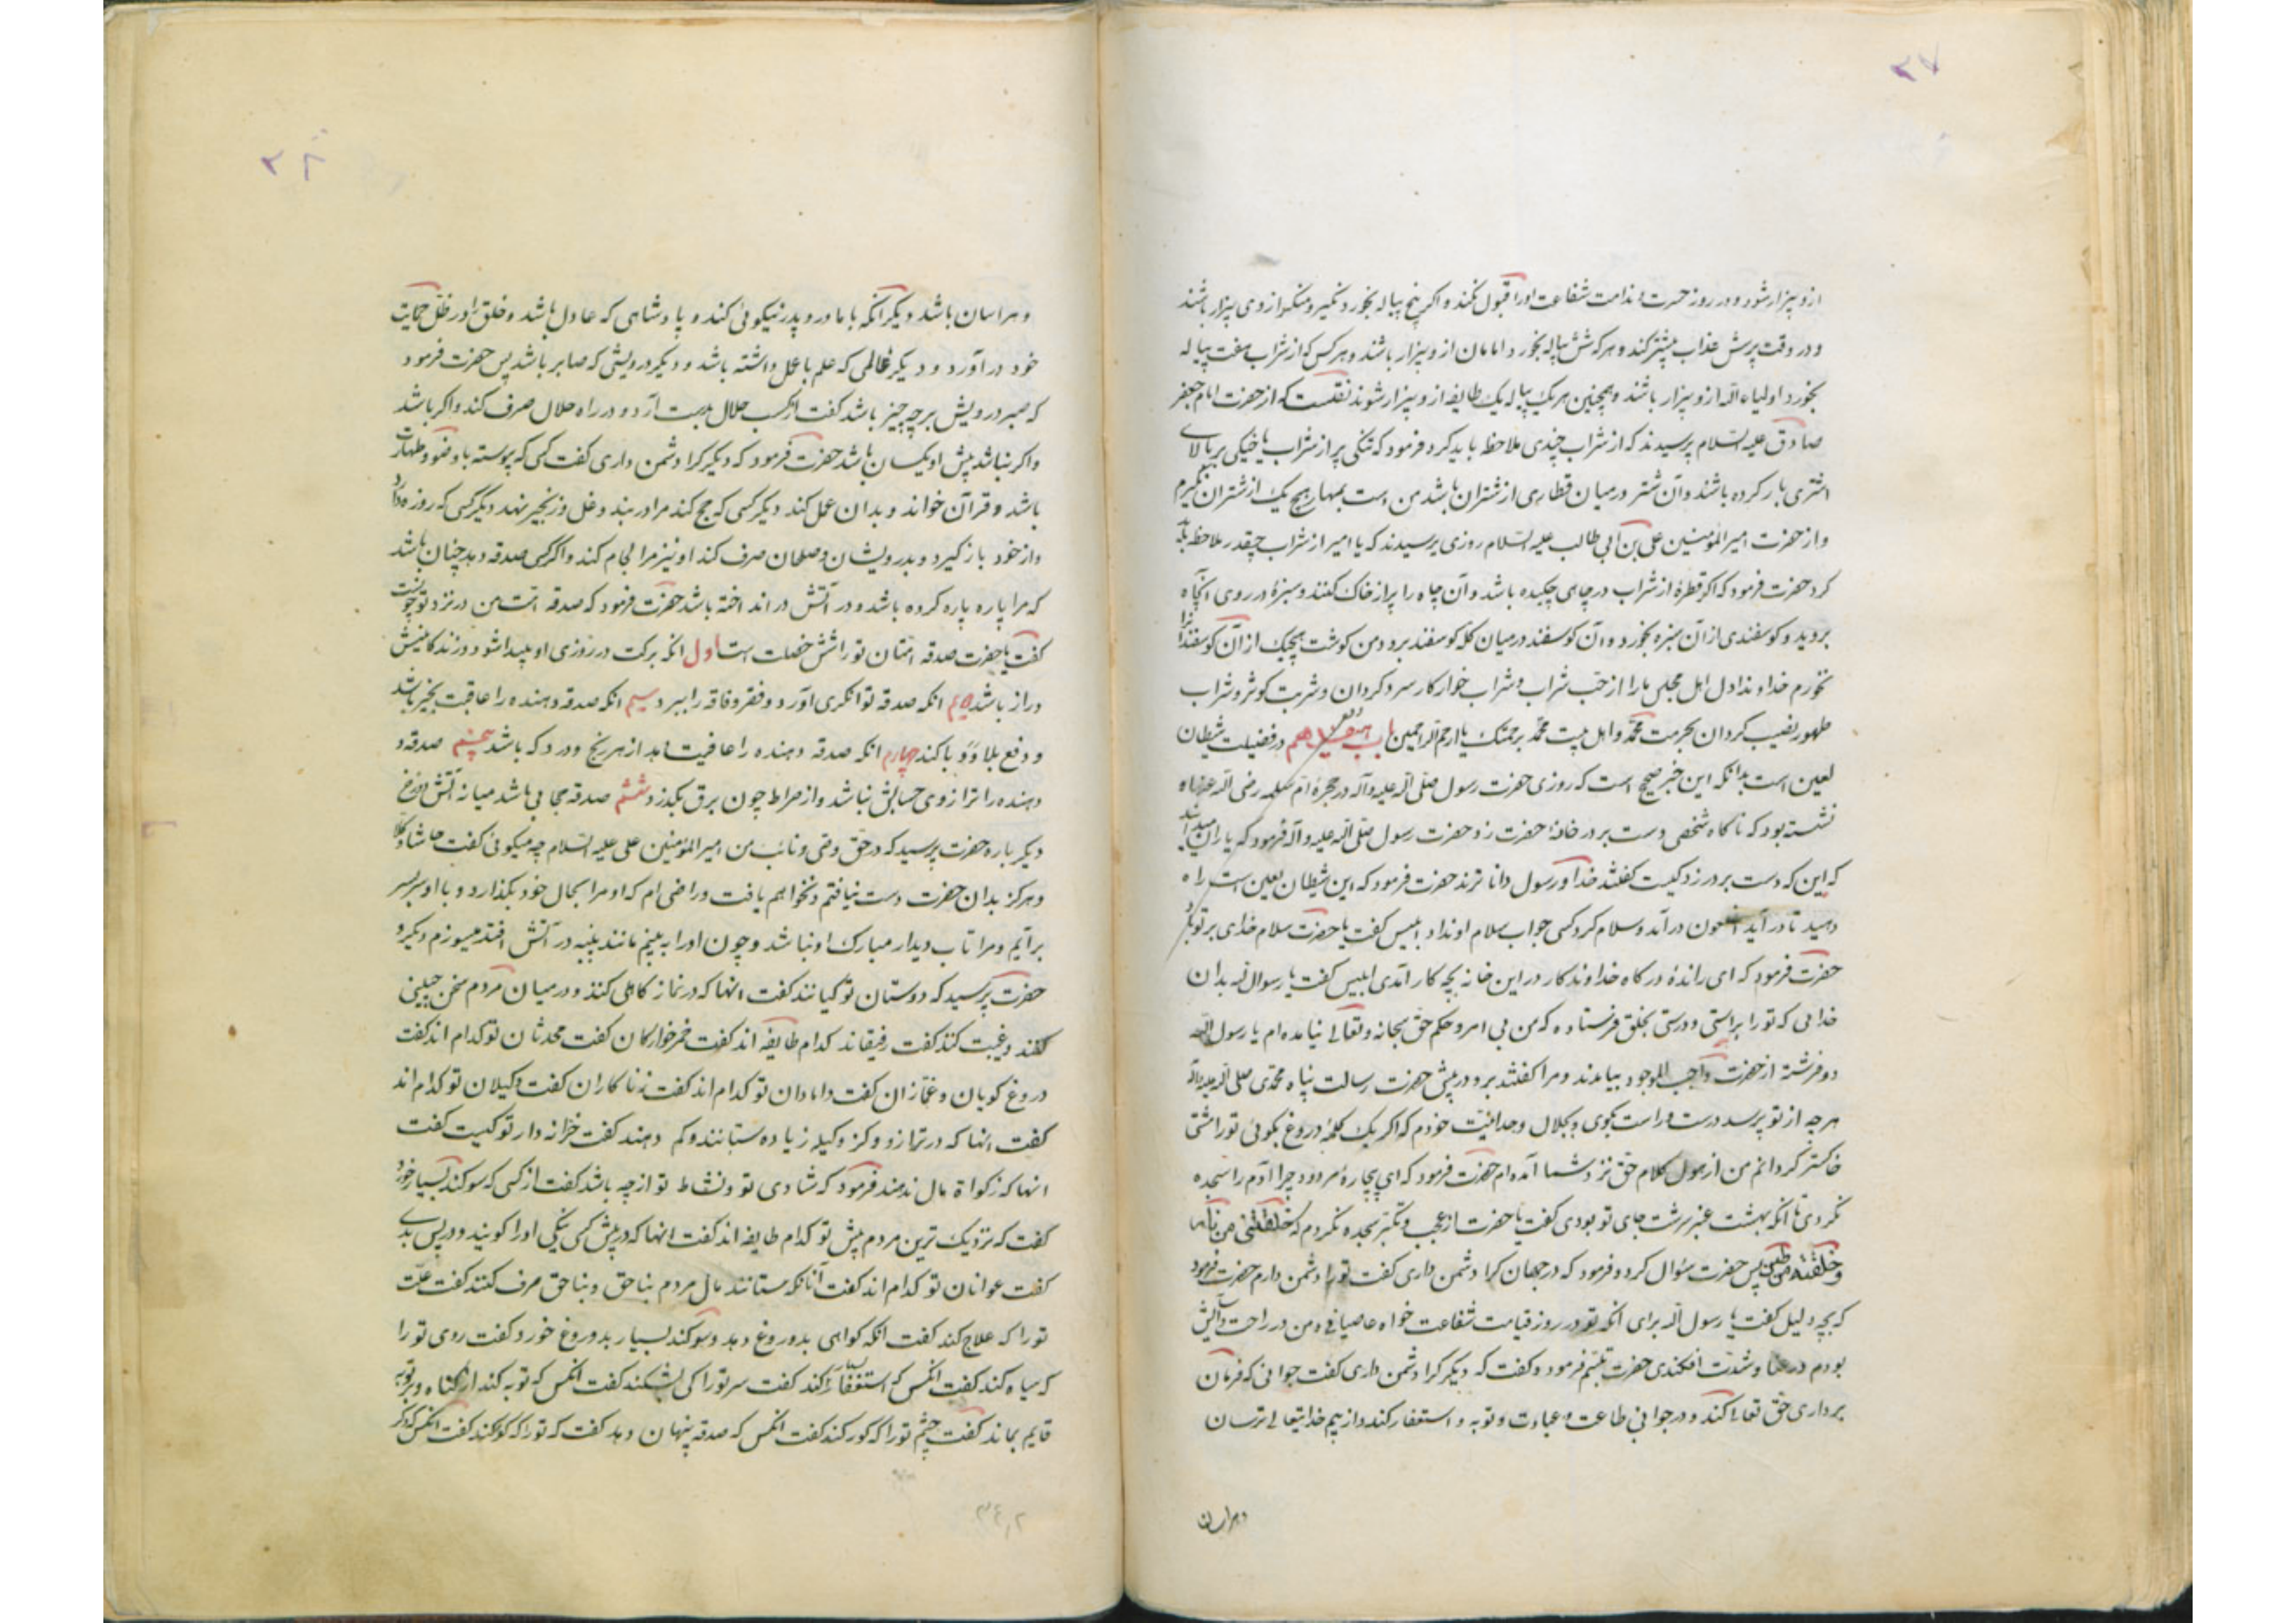 ۲۷
ازو بیزار شود و در روز حسرت و ندامت شفاعت او را قبول نکند و اکر پنج پیاله بخورد نکیر و منکر از وی بیزار باشند
و در وقت پرسش عذاب بیشتر کند و هر که شش پیاله بخورد امامان ازو بیزار باشند و هر کس که از شراب هفت پیاله
بخورد اولیاء الله ازو بیزار باشند و همچنین هر یک پیاله یک طایفه ازو بیزار شوند نقلست که از حضرت امام جعفر
صادق علیه السلام پرسیدند که از شراب چندی ملاحظه باید کرد فرمود که تنکی پر از شراب یا خیکی بر بالای
اشتری بار کرده باشند و آن شتر در میان قطاری از شتران باشد من است بمهار هیچ یک از شتران نکیرم
و از حضرت امیر المؤمنین علی بن ابی طالب علیه السلام روزی پرسیدند که یا امیر از شراب چقدر ملاحظه باید
کرد حضرت فرمود که اکر قطرهٔ از شراب در چاهی چکیده باشد و آن چاه را پر از خاک کنند و سبزهٔ در روی آنچاه
بروید و کوسفندی از آن سبزه بخورد و آن کوسفند در میان کله کوسفند برود من کوشت هیچیک از آن کوسفندانرا
نخورم خداوندا دل اهل مجلس ما را از حب شراب و شراب خوار کار سرد کردان و شربت کوثر و شراب
طهور نصیب کردان بحرمت محمد و اهل بیت محمد برحمتک یا ارحم الراحمین باب هفدهم در فضیلت شیطان
لعین است بدانکه این خبر صحیح است که روزی حضرت رسول صلی الله علیه و آله در حجرهٔ ام سلمه رضی الله عنها
نشسته بود که ناکاه شخصی دست بر در خانهٔ حضرت زد حضرت رسول صلی الله علیه و آله فرمود که یاران میدانید
که این که دست بر در زد کیست کفتند خدا و رسول داناترند حضرت فرمود که این شیطان لعین است راه
دهید تا در آید ملعون در آمد و سلام کرد کسی جواب سلام او نداد ابلیس کفت یا حضرت سلام خدای بر تو باد
حضرت فرمود که ای راندهٔ درکاه خداوندکار در این خانه بچه کار آمدی ابلیس کفت یا رسول الله بدان
خدائی که تو را براستی و درستی بخلق فرستاده که من بی امر و حکم حق سبحانه و تعالی نیامده ام یا رسول الله
دو فرشته از حضرت واجب الوجود بیامدند و مرا کفتند برو در پیش حضرت رسالت پناه محمدی صلی الله علیه و آله
هر چه از تو پرسد درست و راست بکوی و بجلال وحدانیت خودم که اکر یک کلمهٔ دروغ بکوئی تو را مشتی
خاکستر کردانم من از هول کلام حق نزد شما آمده ام حضرت فرمود که ای بیچارهٔ مردود چرا آدم را سجده
نکردی تا انکه بهشت عنبر سرشت جای تو بودی کفت یا حضرت از عجب و تکبر سجده نکردم که خلقتنی من نار
و خلقته من طین پس حضرت سؤال کرد و فرمود که در جهان کرا دشمن داری کفت تو را دشمن دارم حضرت فرمود
که بچه دلیل کفت یا رسول الله برای انکه تو در روز قیامت شفاعت خواه عاصیانی و من در راحت و آسایش
بودم در عنا و شدت افکندی حضرت تبسم فرمود و کفت که دیکر کرا دشمن داری کفت جوانی که فرمان
برداری حق تعالی کند و در جوانی طاعت و عبادت و توبه و استغفار کند و از بیم خدایتعالی ترسان
و هراسان
۲۸
و هراسان باشد دیکر انکه با مادر و پدر نیکوئی کند و پادشاهی که عادل باشد و خلق را در ظل حمایت
خود در آورد و دیکر عالمی که علم با عمل داشته باشد و دیکر درویشی که صابر باشد پس حضرت فرمود
که صبر درویش بر چه چیز باشد کفت از کسب حلال بدست آرد و در راه حلال صرف کند و اکر باشد
و اکر نباشد پیش او یکسان باشد حضرت فرمود که دیکر کرا دشمن داری کفت کسی که پیوسته با وضو و طهارت
باشد و قرآن خواند و بدان عمل کند دیکر کسی که حج کند مرا در بند و غل و زنجیر نهد دیکر کسی که روزه دارد
و از خود باز کیرد و بدرویشان و صلحان صرف کند او نیز مرا لجام کند و اکر کسی صدقه دهد چنان باشد
که مرا پاره پاره کرده باشد و در آتش در انداخته باشد حضرت فرمود که صدقه امت من در نزد تو چونست
کفت یا حضرت صدقه امتان تو را شش خصلت است اول انکه برکت در روزی او پیدا شود و زندکانیش
دراز باشد دویم انکه صدقه توانکری آورد و فقر و فاقه را ببرد سیم انکه صدقه دهنده را عاقبت بخیر باشد
و دفع بلا و وبا کند چهارم انکه صدقه دهنده را عافیت یابد از هر رنج و درد که باشد پنجم صدقه
دهنده را ترازوی حسابش نباشد و از صراط چون برق بکذرد ششم صدقه حجابی باشد میانه آتش دوزخ
دیکر باره حضرت پرسید که در حق وصی و نائب من امیر المؤمنین علی علیه السلام چه میکوئی کفت حاشا و کلا
و هرکز بدان حضرت دست نیافتم و نخواهم یافت و راضی ام که او مرا بحال خود بکذارد و با او سر بسر
برآیم و مرا تاب دیدار مبارک او نباشد و چون او را به بینم مانند پنبه در آتش افتد میسوزم دیکر
حضرت پرسید که دوستان تو کیانند کفت انها که در نماز کاهلی کنند و در میان مردم سخن چینی
کنند و غیبت کنند کفت رفیقانت کدام طایفه اند کفت خمر خوارکان کفت محدثان تو کدام اند کفت
دروغ کویان و غمازان کفت دامادان تو کدام اند کفت زناکاران کفت وکیلان تو کدام اند
کفت انها که در ترازو و کز و کیله زیاده ستانند و کم دهند کفت خزانه دار تو کیست کفت
انها که زکواة مال ندهند فرمود که شادی تو و نشاط تو از چه باشد کفت از کسی که سوکند بسیار خورد
کفت که نزدیک ترین مردم پیش تو کدام طایفه اند کفت انها که در پیش کسی نیکی او را کویند و در پس بدی
کفت عوانان تو کدام اند کفت آنانکه مستانند مال مردم بناحق و بناحق صرف کنند کفت علت
تو را که علاج کند کفت انکه کواهی بدروغ دهد و سوکند بسیار بدروغ خورد کفت روی تو را
که سیاه کند کفت انکس که استغفار بسیار کند کفت سر تو را کی بشکند کفت انکس که توبه کند از کناه و بر توبه
قایم بماند کفت چشم تو را که کور کند کفت انکس که صدقه پنهان دهد کفت که تو را که کر کند کفت انکس که ذکر